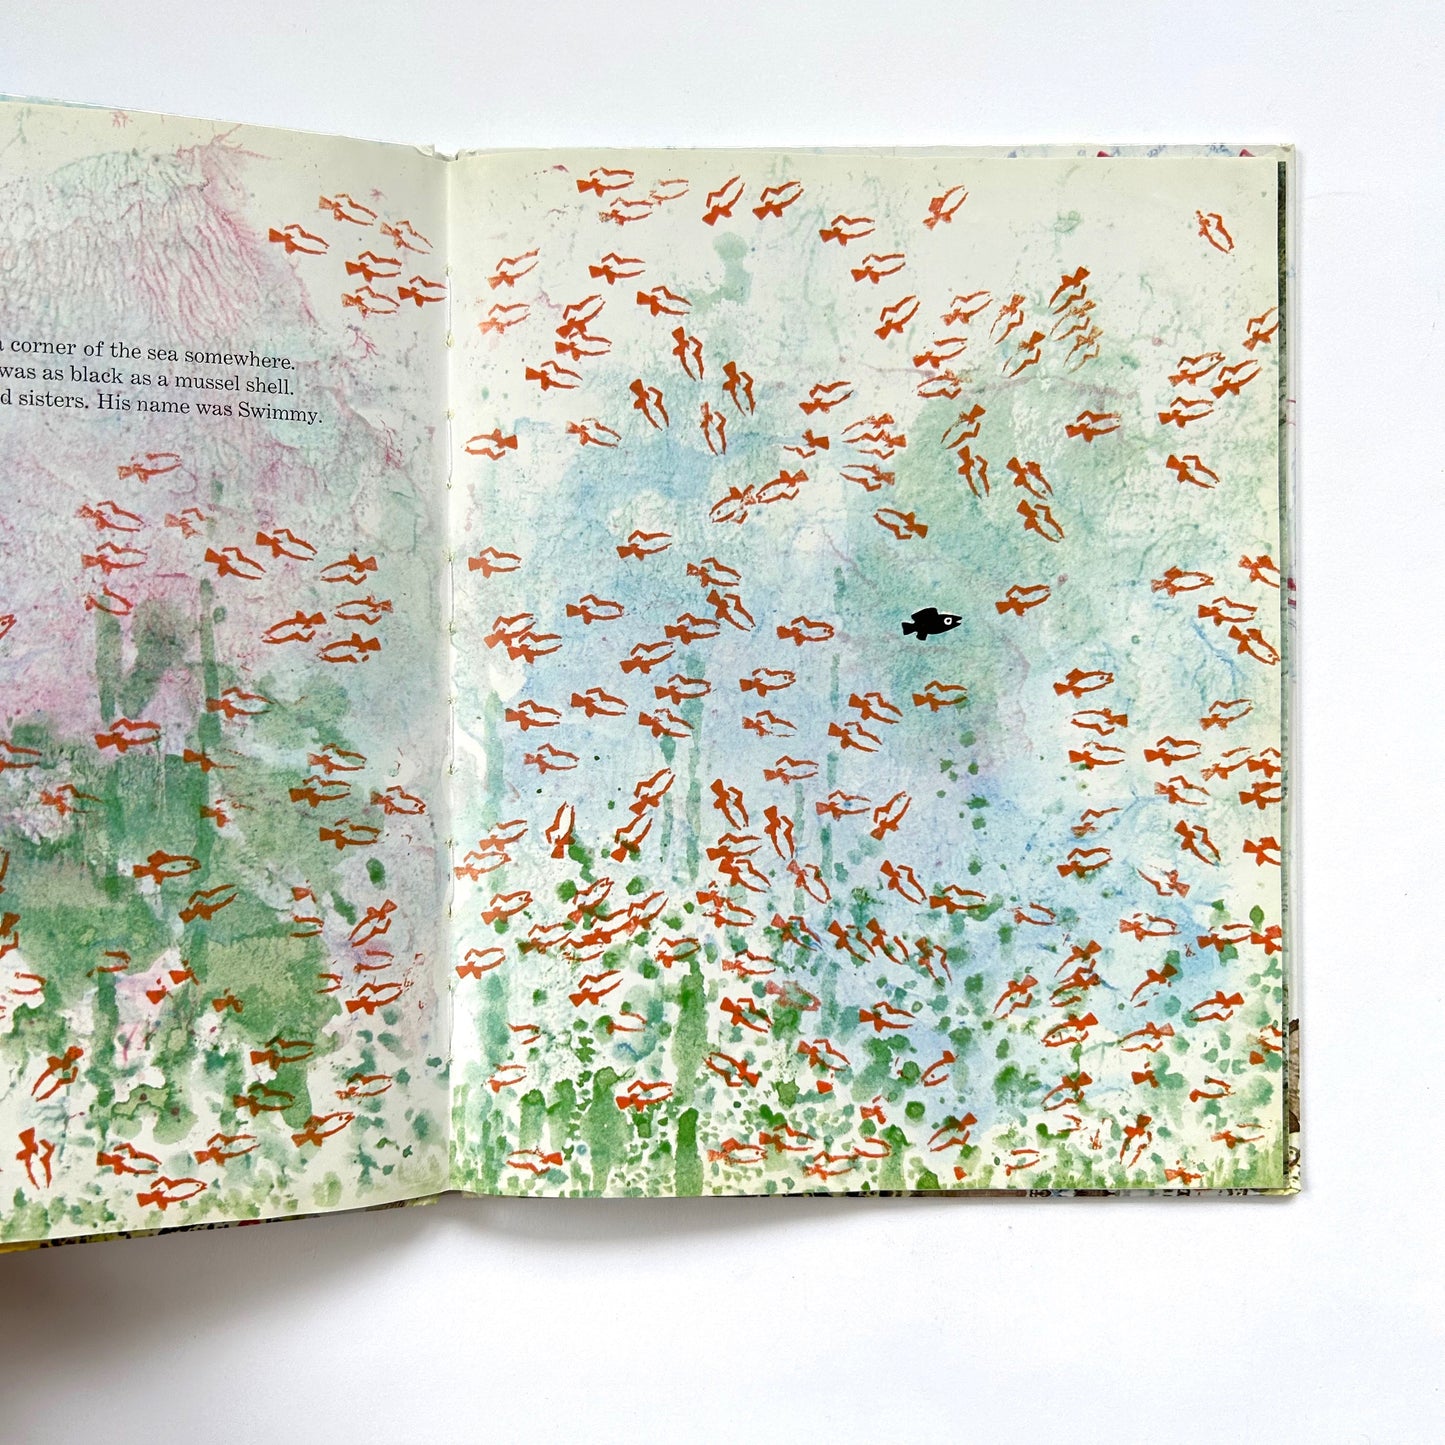 a corner of the sea somewhere.
was as black as a mussel shell.
sisters. His name was Swimmy.